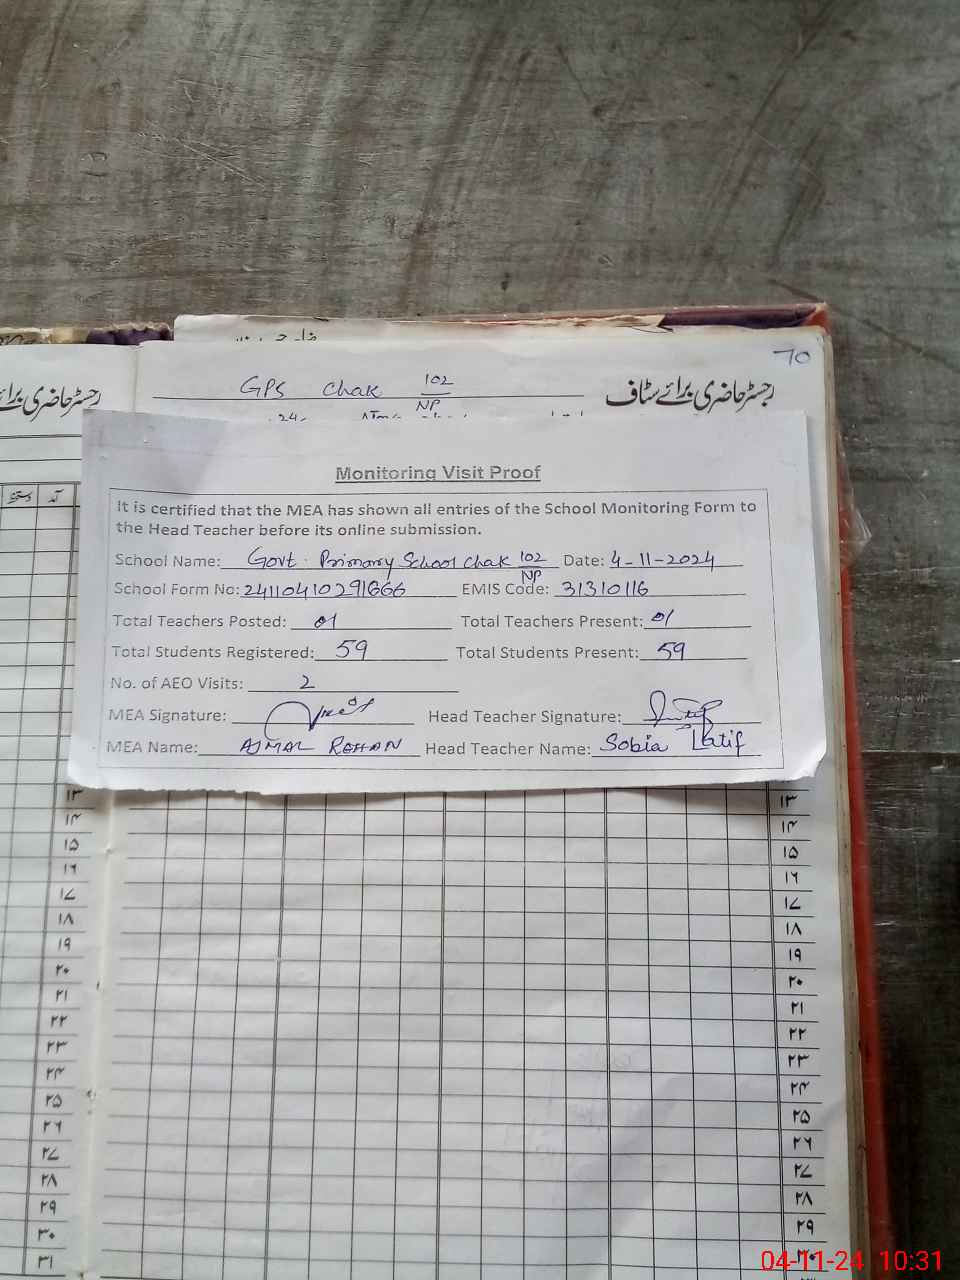 70
GPS Chak 102/NP
رجسٹر حاضری برائے سٹاف
رجسٹر حاضری برائے
دستخط آمد
Monitoring Visit Proof
It is certified that the MEA has shown all entries of the School Monitoring Form to
the Head Teacher before its online submission.
School Name: Govt. Primary School Chak 102/NP Date: 4-11-2024
School Form No: 24110410291666 EMIS Code: 31310116
Total Teachers Posted: 01 Total Teachers Present: 01
Total Students Registered: 59 Total Students Present: 59
No. of AEO Visits: 2
MEA Signature: Head Teacher Signature:
MEA Name: AJMAL REHAN Head Teacher Name: Sobia Latif
۱۳ ۱۳
۱۴ ۱۴
۱۵ ۱۵
۱۶ ۱۶
۱۷ ۱۷
۱۸ ۱۸
۱۹ ۱۹
۲۰ ۲۰
۲۱ ۲۱
۲۲ ۲۲
۲۳ ۲۳
۲۴ ۲۴
۲۵ ۲۵
۲۶ ۲۶
۲۷ ۲۷
۲۸ ۲۸
۲۹ ۲۹
۳۰ ۳۰
۳۱
04-11-24 10:31